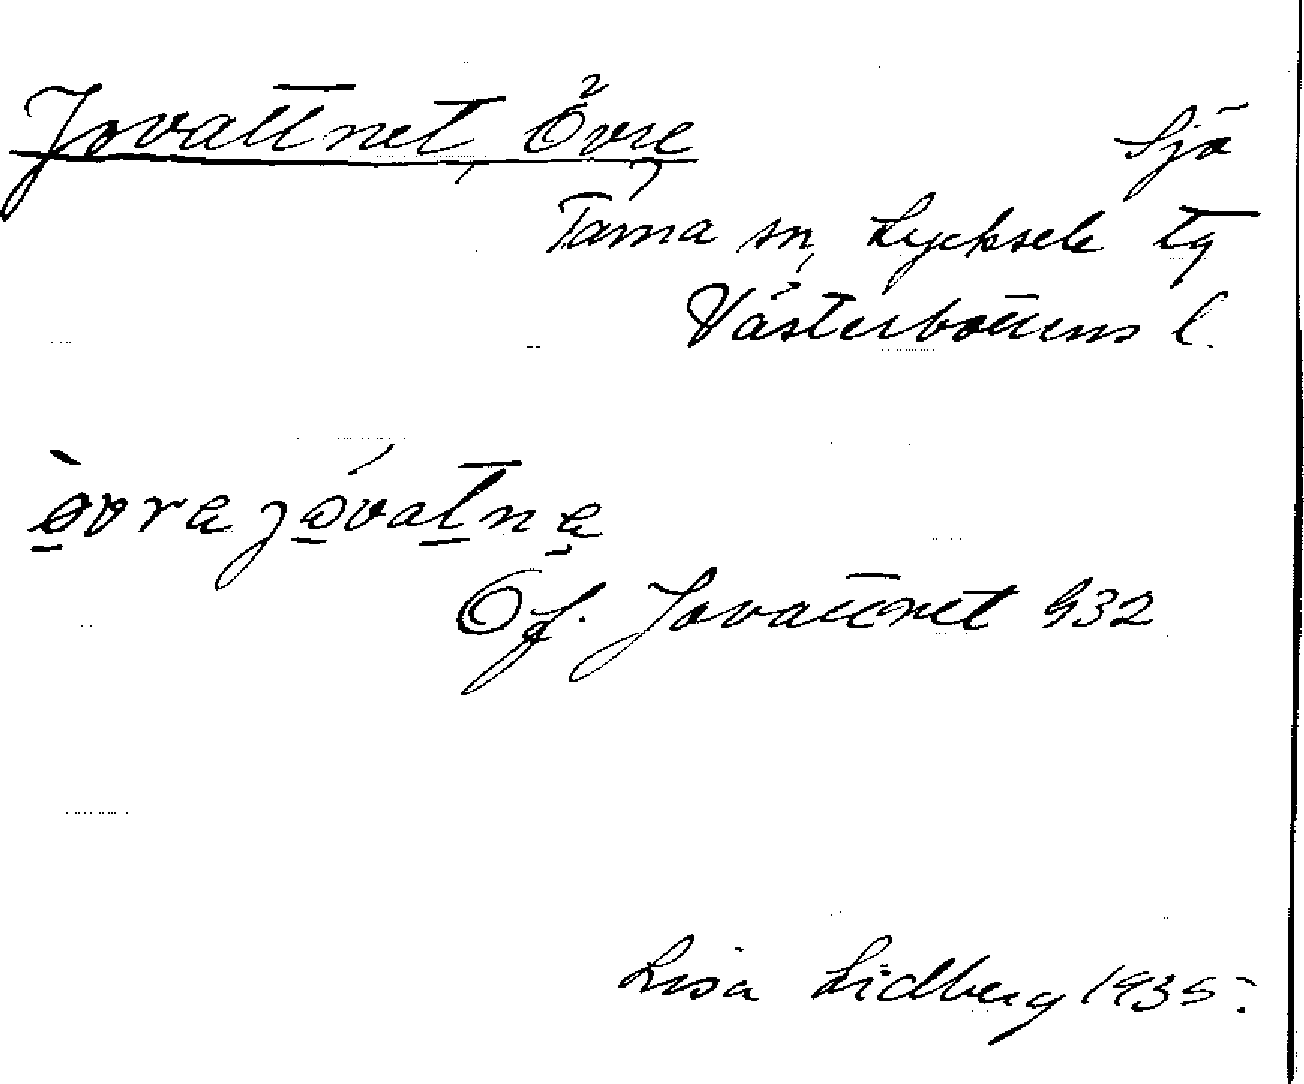 Jovattnet, Övre Sjö
Tärna sn, Lycksele lg
Västerbottens l.
Jovattnet 932
Lisa Lidberg 1935.